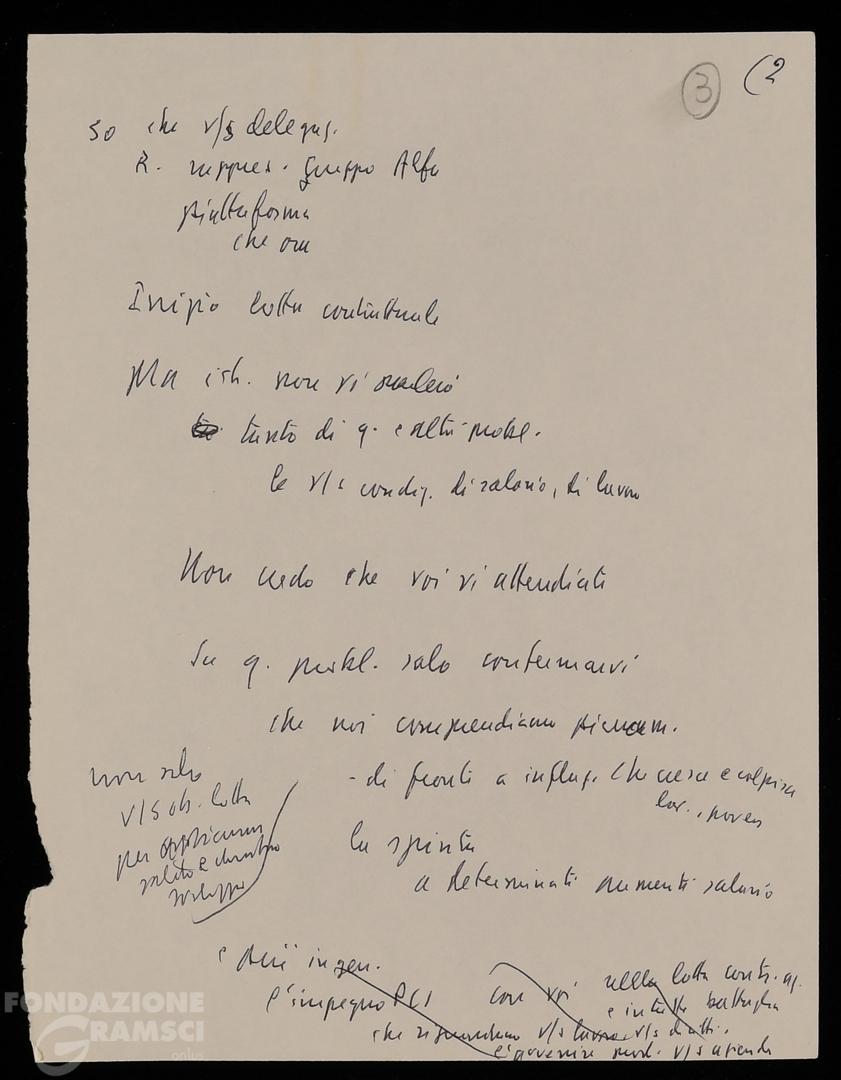 3 (2
so che v/s delegaz.
R. rappres. Gruppo Alfa
piattaforma
che ora
Inizio lotta contrattuale
Ma ish. non vi
tanto di q. e altri probl.
le v/s condiz. di salario, di lavoro
Non credo che voi vi attendiate
Su q. probl. solo confermarvi
che noi comprendiamo pienam.
- di fronte a inflaz. che cresce e colpisce
lav., poveri
la spinta
a determinati aumenti salario
non solo
v/s ob. lotta
per
salute e
sviluppo
e più in gen.
l'impegno PCI con voi nella lotta contr. az.
e in tutte battaglie
che riguardano v/s lavoro, v/s diritti,
v/s aziende
FONDAZIONE
GRAMSCI
onlus